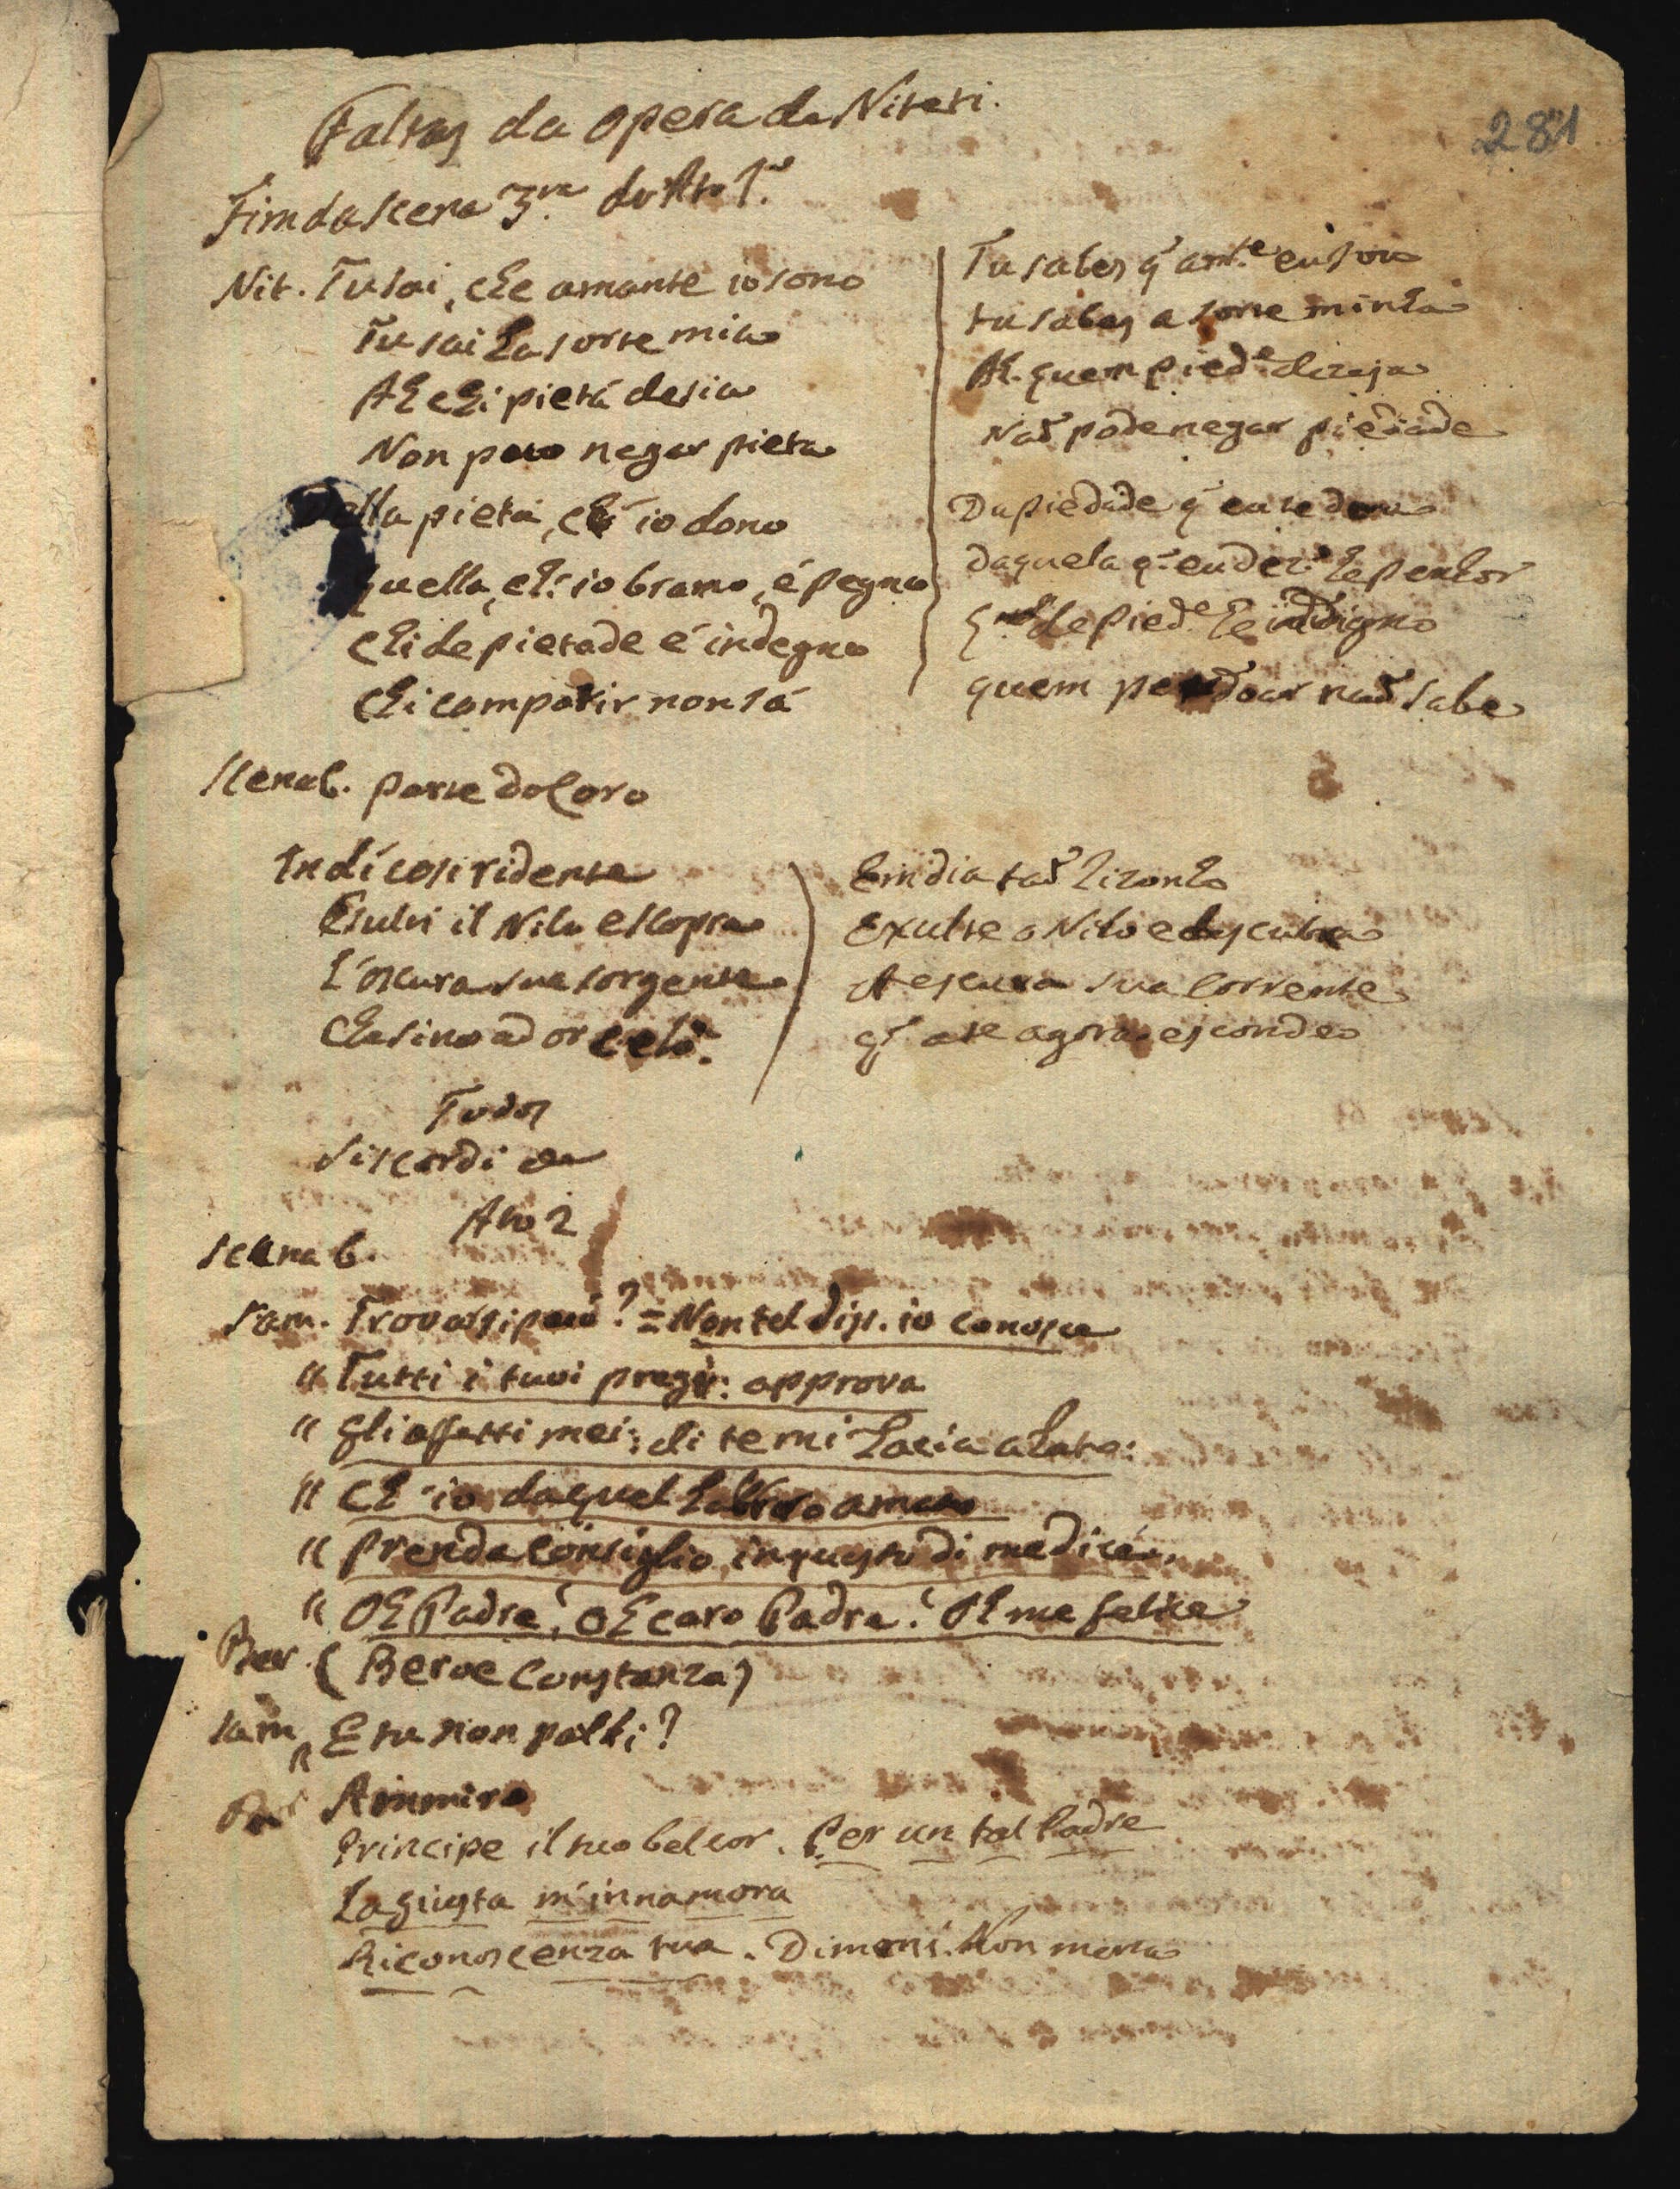 Faltas da opera de Niteti.
281
Fim da scena 3.ra do Ato 1.o
Nit. Tu sai, che amante io sono
Tu sai la sorte mia
Ah chi pietá desia
Non puo negar pieta
Della pietá, ch' io dono
Quella, ch' io bramo, é pegno
Chi de pietade é indegno
Chi compatir non sá
Tu sabes q̃ am.te eu sou
tu sabes a sorte minha
Ah quem pied.e dezeja
Naõ pode negar piedade
Da piedade q̃ eu te dou
daquela q̃ eu dez.o he penhor
de pied.e he indigno
quem perdoar naõ sabe
Scena 6. parte do Coro
In dí cosi ridente
Esulti il Nilo e scopra
L'oscura sua sorgente
Che sino ad or celó.
Em dia taõ rizonho
Exulte o Nilo e descubra
A escura sua corrente
q̃ ate agora escondeo
Todos
Si scordi &
Ato 2
Scena 6.
Sam. Trovarsi puó? = Non tel diss. io conosce
" Tutti i tuoi pregi: approva
" gli affetti mei: di te mi lacia a lato:
" Ch' io da quel labbro amato
" prenda consiglio in questo di medicá.
" Oh Padre! oh caro Padre! Oh me felice
Ber. (Beroe Constanza)
Sam " E tu non palti?
Ber Ammiro
Principe il tuo bel cor. Per un tal Padre
La giusta m'innamora
Riconoscenza tua. Dimmi. Non merta